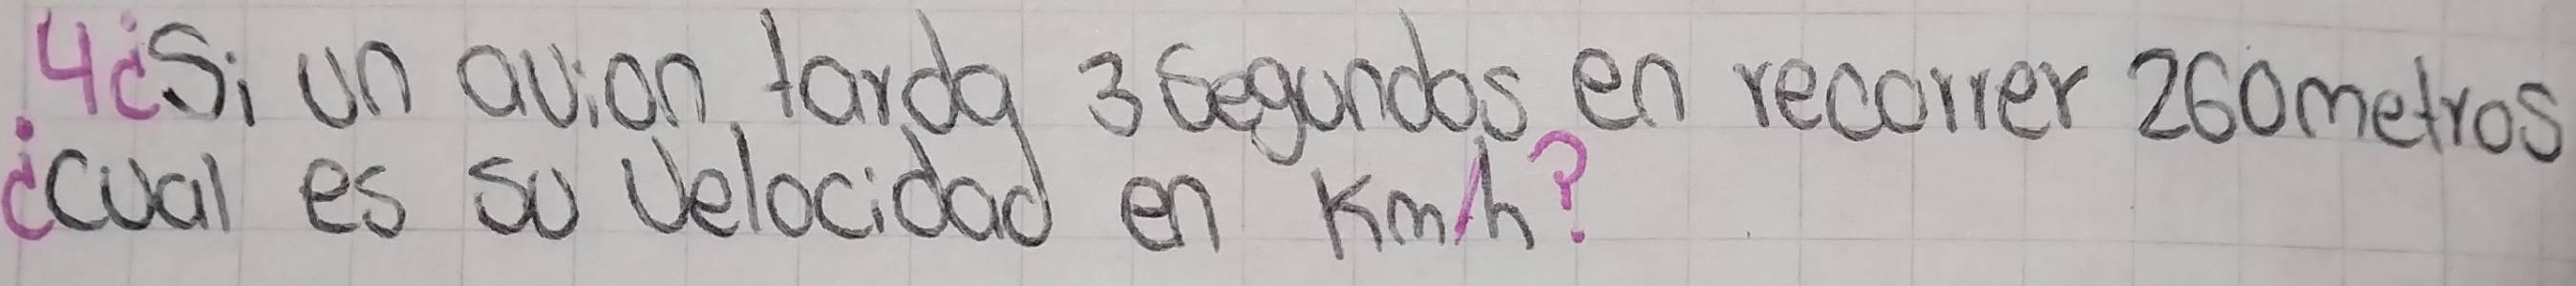 4¿Si un avion, tarda 3 segundos en recorrer 260metros
¿cual es su velocidad en Km/h?